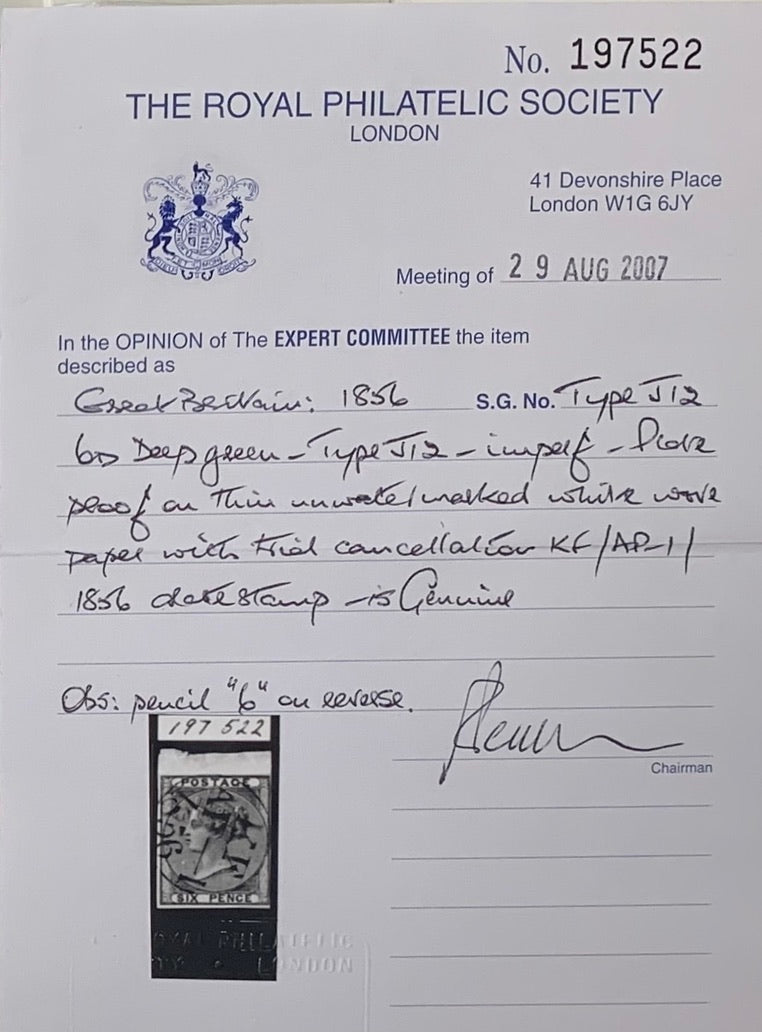 No. 197522
THE ROYAL PHILATELIC SOCIETY
LONDON
41 Devonshire Place
London W1G 6JY
Meeting of 29 AUG 2007
In the OPINION of The EXPERT COMMITTEE the item
described as
Great Britain: 1856 S.G. No. Type J12
6D Deep green - Type J12 - imperf - Plate
proof on thin unwatermarked white wove
paper with trial cancellation KF/AP-1/
1856 datestamp - is Genuine
Obs: pencil "6" on reverse.
197 522
Chairman
POSTAGE
SIX PENCE
ROYAL PHILATELIC
LONDON